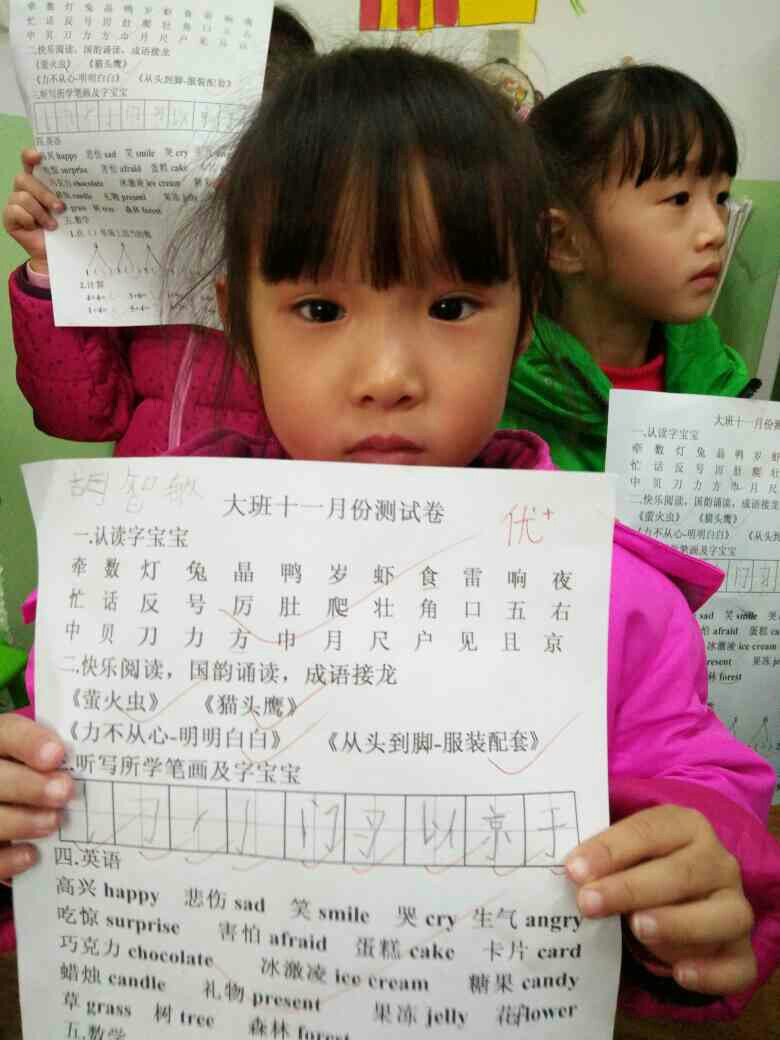 牵 数 灯 兔 晶 鸭 岁 虾 食
忙 话 反 号 厉 肚 爬 壮 角 口
中 贝 刀 力 方 巾 月 尺 户 见
二.快乐阅读，国韵诵读，成语接龙
《萤火虫》 《猫头鹰》
《力不从心-明明白白》 《从头到脚-服装配套》
三.听写所学笔画及字宝宝
四.英语
高兴 happy 悲伤 sad 笑 smile 哭 cry
吃惊 surprise 害怕 afraid 蛋糕 cake
巧克力 chocolate 冰激凌 ice cream
蜡烛 candle 礼物 present 果冻 jelly
grass 树 tree 森林 forest
五.数学
2.计算
胡智敏
大班十一月份测试卷
优+
一.认读字宝宝
牵 数 灯 兔 晶 鸭 岁 虾 食 雷 响 夜
忙 话 反 号 厉 肚 爬 壮 角 口 五 右
中 贝 刀 力 方 巾 月 尺 户 见 且 京
二.快乐阅读，国韵诵读，成语接龙
《萤火虫》 《猫头鹰》
《力不从心-明明白白》 《从头到脚-服装配套》
三.听写所学笔画及字宝宝
们 以 京 于
四.英语
高兴 happy 悲伤 sad 笑 smile 哭 cry 生气 angry
吃惊 surprise 害怕 afraid 蛋糕 cake 卡片 card
巧克力 chocolate 冰激凌 ice cream 糖果 candy
蜡烛 candle 礼物 present 果冻 jelly 花 flower
草 grass 树 tree 森林 forest
五.数学
大班十一月份测
一.认读字宝宝
牵 数 灯 兔 晶 鸭 岁 虾
忙 话 反 号 厉 肚 爬 壮
中 贝 刀 力 方 巾 月 尺
二.快乐阅读，国韵诵读，成语接
《萤火虫》 《猫头鹰》
《力不从心-明明白白》 《从头
笔画及字宝宝
sad 笑 smile 哭
害怕 afraid 蛋糕
冰激凌 ice cream
present 果冻
森林 forest